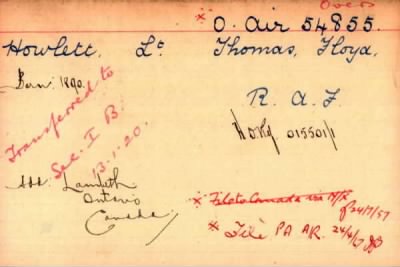 Over
* O. Air 54855.
Howlett. Lt Thomas, Floyd.
Born 1890.
R. A. F
Transferred to
Sec. I B.
13.1.20.
015501/1
Add. Lambeth
Ontario
Canada
* File to Canada via N/R
24/7/57
* File PA AR. 24/4/67